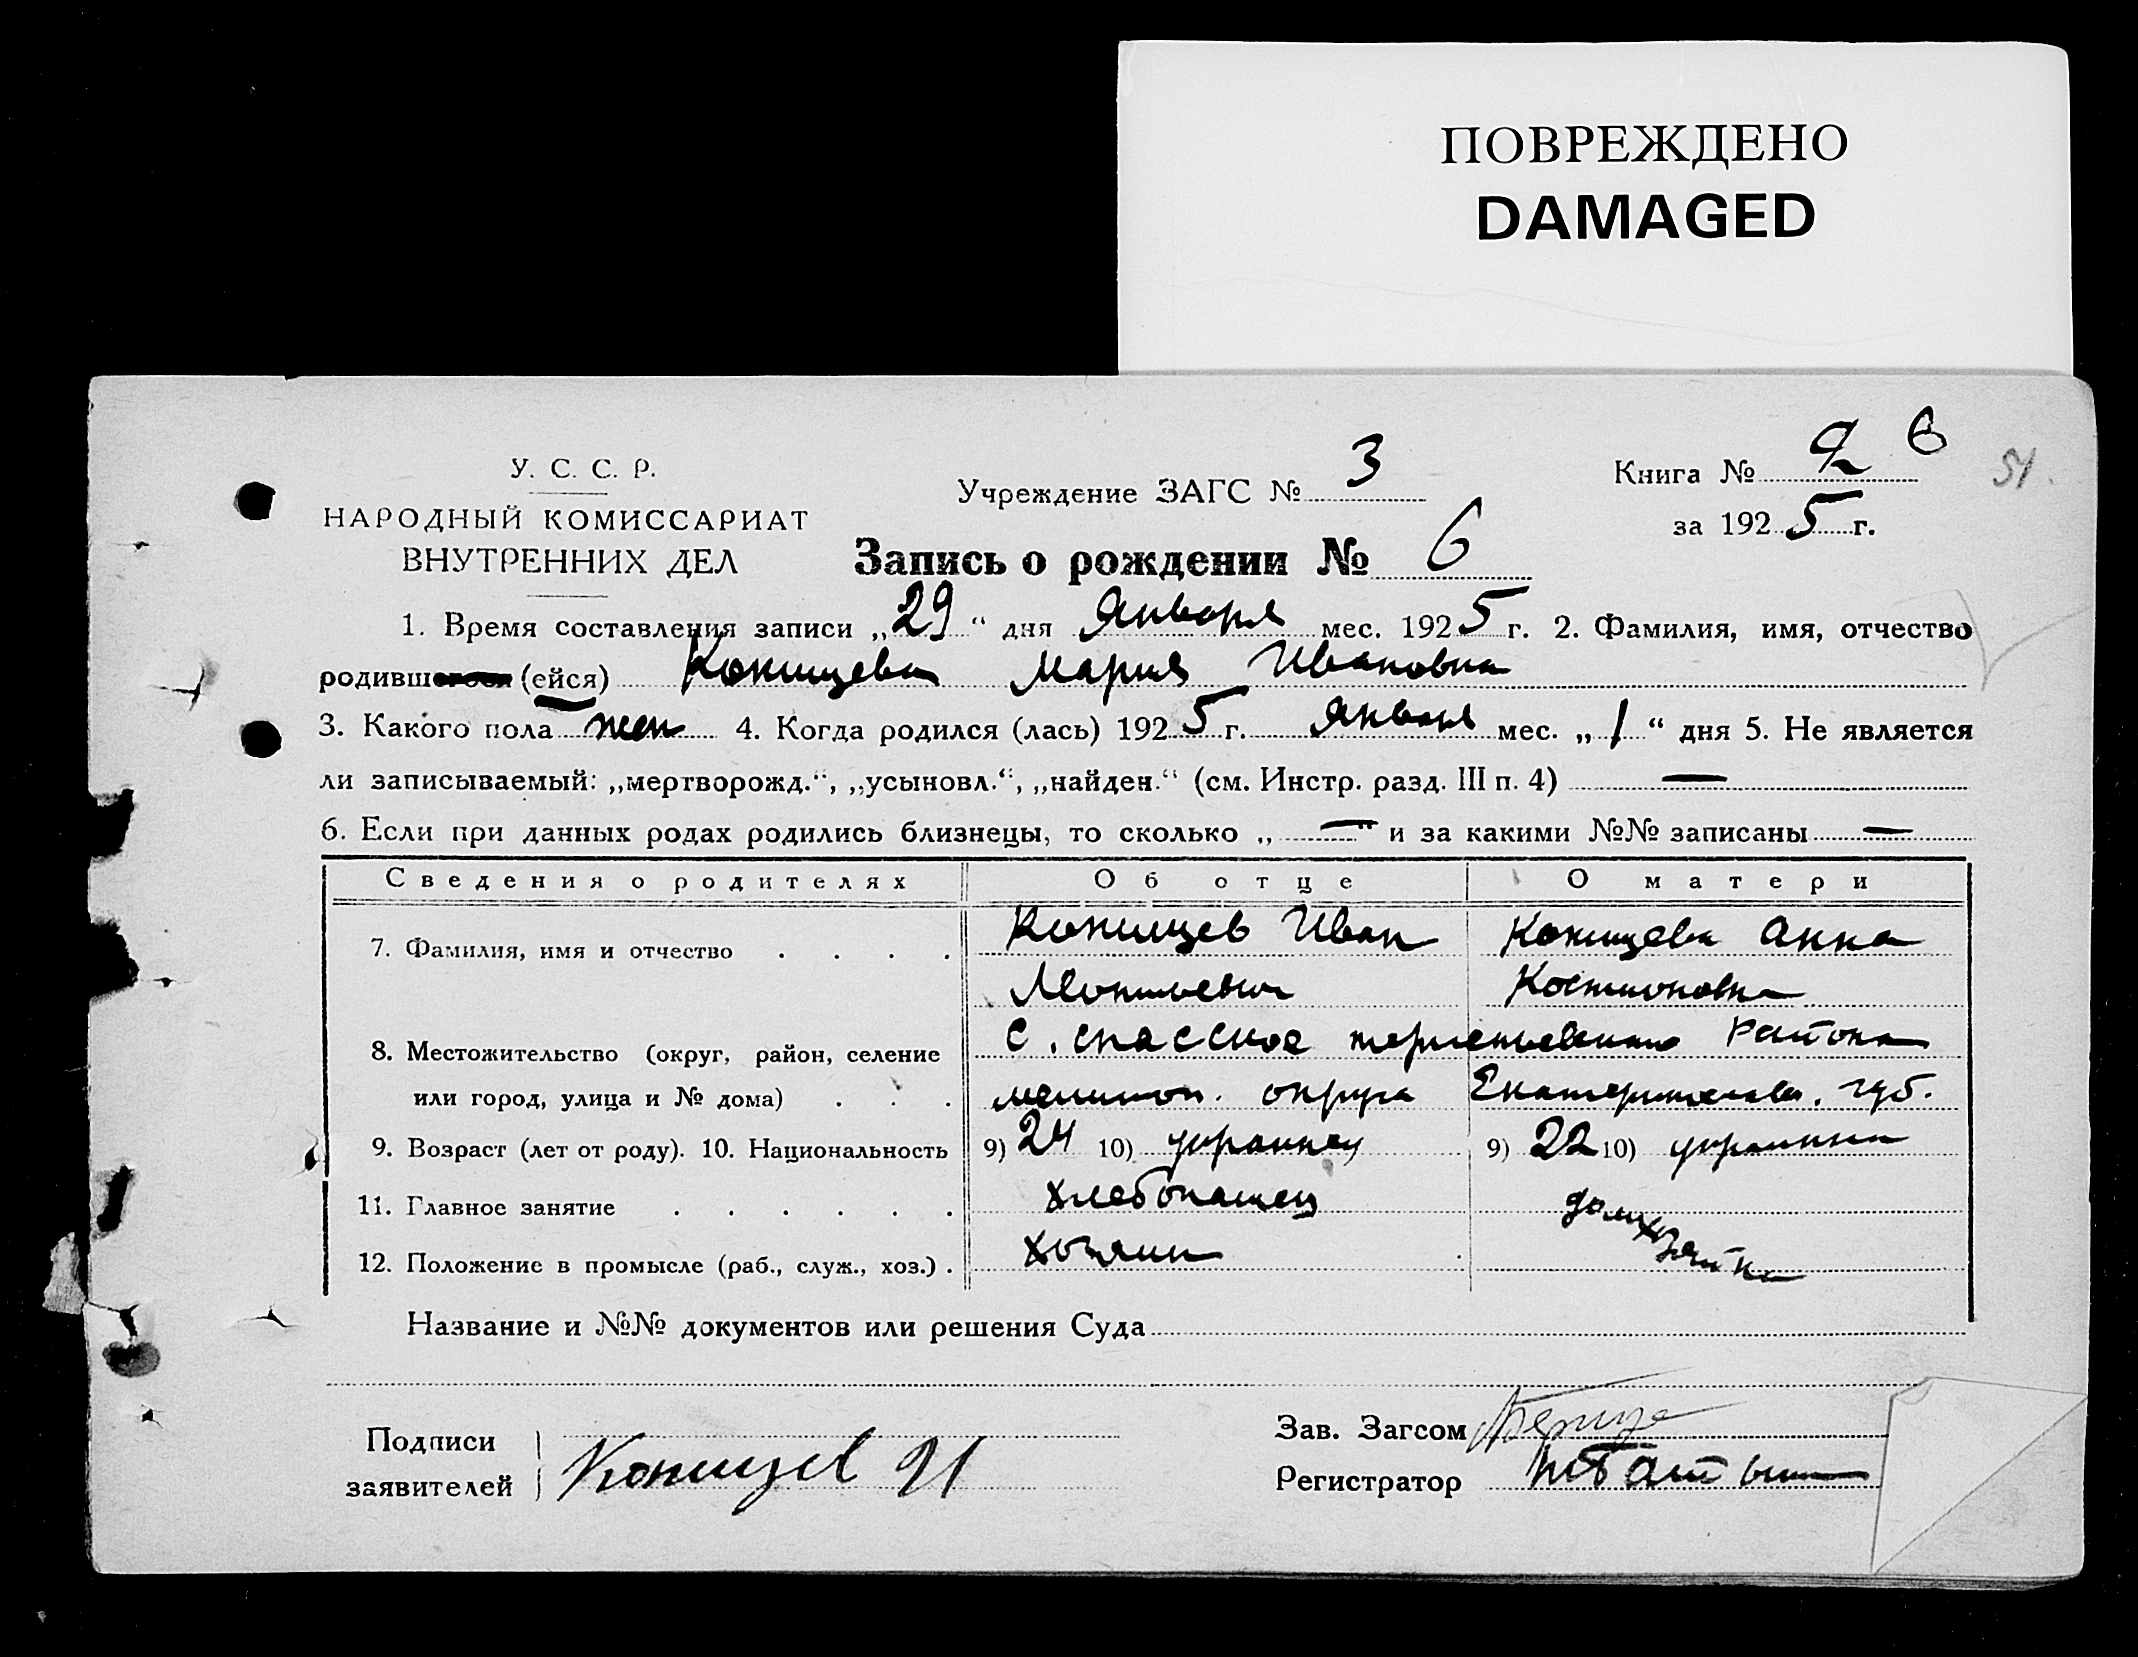 ПОВРЕЖДЕНО
DAMAGED
У. С. С. Р.
НАРОДНЫЙ КОМИССАРИАТ
ВНУТРЕННИХ ДЕЛ
Учреждение ЗАГС № 3
Книга № 2 6
51
за 1925 г.
Запись о рождении № 6
1. Время составления записи „29“ дня Января мес. 1925 г. 2. Фамилия, имя, отчество
родившегося (ейся) Конищева Мария Ивановна
3. Какого пола жен 4. Когда родился (лась) 1925 г. Января мес. „1“ дня 5. Не является
ли записываемый: „мертворожд.“, „усыновл.“, „найден.“ (см. Инстр. разд. III п. 4) —
6. Если при данных родах родились близнецы, то сколько „—“ и за какими №№ записаны —
Сведения о родителях Об отце О матери
7. Фамилия, имя и отчество . . . . Конищев Иван Конищева Анна
Леонтьевич
8. Местожительство (округ, район, селение с. спасское района
или город, улица и № дома) . . . округа Екатеринослав. губ.
9. Возраст (лет от роду). 10. Национальность 9) 24 10) украинец 9) 22 10) украинка
11. Главное занятие . . . . . . хлебопашец домхозяйка
12. Положение в промысле (раб., служ., хоз.) . хозяин
Название и №№ документов или решения Суда
Подписи
заявителей Конищев И
Зав. Загсом
Регистратор